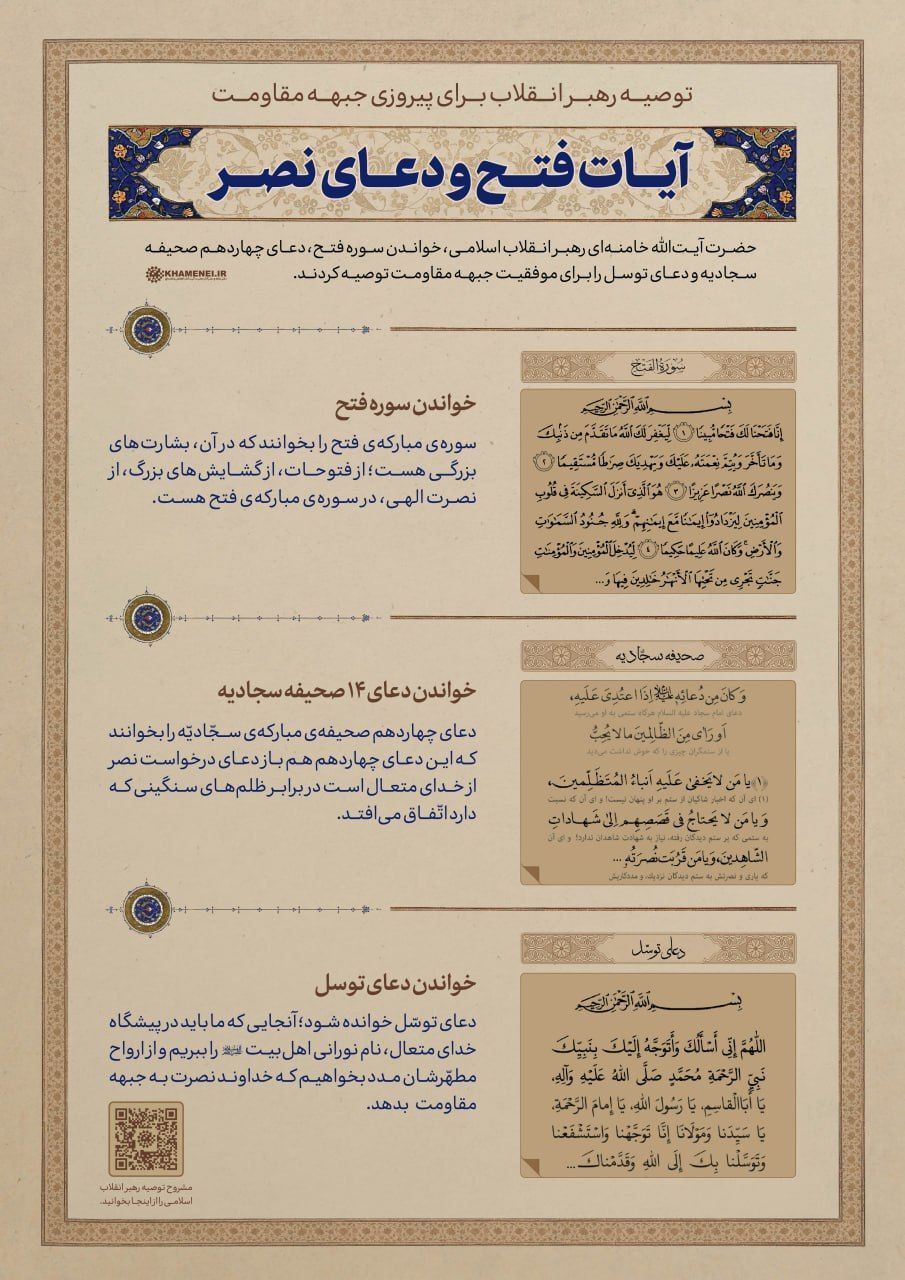 توصیه رهبر انقلاب برای پیروزی جبهه مقاومت
آیات فتح و دعای نصر
حضرت آیت‌الله خامنه‌ای رهبر انقلاب اسلامی، خواندن سوره فتح، دعای چهاردهم صحیفه
سجادیه و دعای توسل را برای موفقیت جبهه مقاومت توصیه کردند.
KHAMENEI.IR
سُورَةُ الفَتْحِ
بِسْمِ اللَّهِ الرَّحْمَٰنِ الرَّحِيمِ
إِنَّا فَتَحْنَا لَكَ فَتْحًا مُّبِينًا ﴿١﴾ لِّيَغْفِرَ لَكَ اللَّهُ مَا تَقَدَّمَ مِن ذَنۢبِكَ
وَمَا تَأَخَّرَ وَيُتِمَّ نِعْمَتَهُۥ عَلَيْكَ وَيَهْدِيَكَ صِرَٰطًا مُّسْتَقِيمًا ﴿٢﴾
وَيَنصُرَكَ اللَّهُ نَصْرًا عَزِيزًا ﴿٣﴾ هُوَ الَّذِىٓ أَنزَلَ السَّكِينَةَ فِى قُلُوبِ
الْمُؤْمِنِينَ لِيَزْدَادُوٓا۟ إِيمَٰنًا مَّعَ إِيمَٰنِهِمْ ۗ وَلِلَّهِ جُنُودُ السَّمَٰوَٰتِ
وَالْأَرْضِ ۚ وَكَانَ اللَّهُ عَلِيمًا حَكِيمًا ﴿٤﴾ لِّيُدْخِلَ الْمُؤْمِنِينَ وَالْمُؤْمِنَٰتِ
جَنَّٰتٍ تَجْرِى مِن تَحْتِهَا الْأَنْهَٰرُ خَٰلِدِينَ فِيهَا وَ...
خواندن سوره فتح
سوره‌ی مبارکه‌ی فتح را بخوانند که در آن، بشارت‌های
بزرگی هست؛ از فتوحات، از گشایش‌های بزرگ، از
نصرت الهی، در سوره‌ی مبارکه‌ی فتح هست.
صحیفه سجّادیه
وَ كَانَ مِن دُعائِهِ علیه‌السلام إِذَا اعتُدِيَ عَلَيهِ،
دعای امام سجاد علیه السلام هرگاه ستمی به او می‌رسید
أَو رَأى مِنَ الظّالِمينَ ما لا يُحِبُّ
یا از ستمگران چیزی را که خوش نداشت می‌دید
﴿۱﴾ يا مَن لا يَخفىٰ عَلَيهِ أَنباءُ المُتَظَلِّمينَ،
(۱) ای آن که اخبار شاکیان از ستم بر او پنهان نیست! و ای آن که نسبت
وَ يا مَن لا يَحتاجُ في قَصَصِهِم إِلىٰ شَهاداتِ
به ستمی که بر ستم دیدگان رفته، نیاز به شهادت شاهدان ندارد! و ای آن
الشّاهِدينَ، وَ يا مَن قَرُبَت نُصرَتُهُ ...
که یاری و نصرتش به ستم دیدگان نزدیک، و مددکاریش
خواندن دعای ۱۴ صحیفه سجادیه
دعای چهاردهم صحیفه‌ی مبارکه‌ی سجّادیّه را بخوانند
که این دعای چهاردهم هم باز دعای درخواست نصر
از خدای متعال است در برابر ظلم‌های سنگینی که
دارد اتّفاق می‌افتد.
دعای توسّل
بِسْمِ اللَّهِ الرَّحْمَٰنِ الرَّحِيمِ
اللّٰهُمَّ إِنِّي أَسْأَلُكَ وَأَتَوَجَّهُ إِلَيْكَ بِنَبِيِّكَ
نَبِيِّ الرَّحْمَةِ مُحَمَّدٍ صَلَّى اللهُ عَلَيْهِ وَآلِهِ،
يَا أَبَا الْقاسِمِ، يَا رَسُولَ اللهِ، يَا إِمامَ الرَّحْمَةِ،
يَا سَيِّدَنا وَمَوْلَانا إِنَّا تَوَجَّهْنا وَاسْتَشْفَعْنا
وَتَوَسَّلْنا بِكَ إِلَى اللهِ وَقَدَّمْناكَ ...
خواندن دعای توسل
دعای توسّل خوانده شود؛ آنجایی که ما باید در پیشگاه
خدای متعال، نام نورانی اهل‌بیت علیهم‌السلام را ببریم و از ارواح
مطهّرشان مدد بخواهیم که خداوند نصرت به جبهه
مقاومت بدهد.
مشروح توصیه رهبر انقلاب
اسلامی را از اینجا بخوانید.